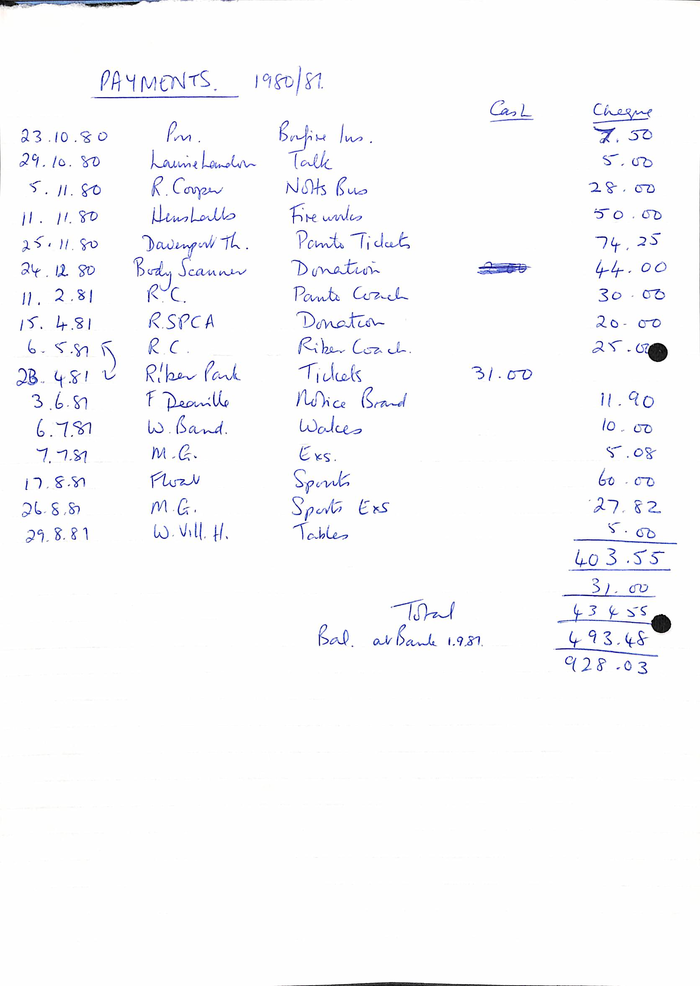 PAYMENTS. 1980/81.
Cash Cheque
23.10.80 Pru. Bonfire Ins. 7.50
29.10.80 Laurie Landon Talk 5.00
5.11.80 R. Cooper Notts Bus 28.00
11.11.80 Henshalls Fireworks 50.00
25.11.80 Davenport Th. Panto Tickets 74.25
24.12.80 Body Scanner Donation 44.00
11.2.81 R.C. Panto Coach 30.00
15.4.81 RSPCA Donation 20.00
6.5.81 R.C. Riber Coach. 25.00
23.4.81 Riber Park Tickets 31.00
3.6.81 F Deaville Notice Board 11.90
6.7.81 W. Band. Wakes 10.00
7.7.81 M.G. Exs. 5.08
17.8.81 Float Sports 60.00
26.8.81 M.G. Sports Exs 27.82
29.8.81 W. Vill. H. Tables 5.00
403.55
31.00
Total 434 55
Bal. at Bank 1.9.81. 493.48
928.03